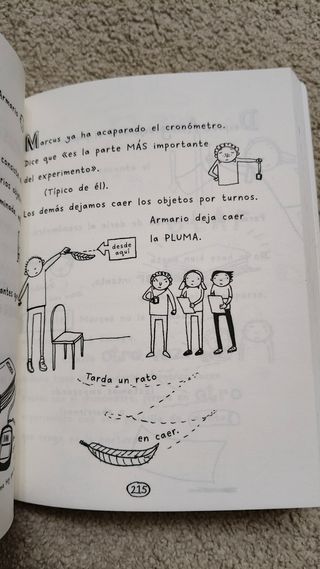 Marcus ya ha acaparado el cronómetro.
Dice que «es la parte MÁS importante
del experimento».
(Típico de él).
Los demás dejamos caer los objetos por turnos.
Armario deja caer
la PLUMA.
desde
aquí
Tarda un rato
en caer.
215